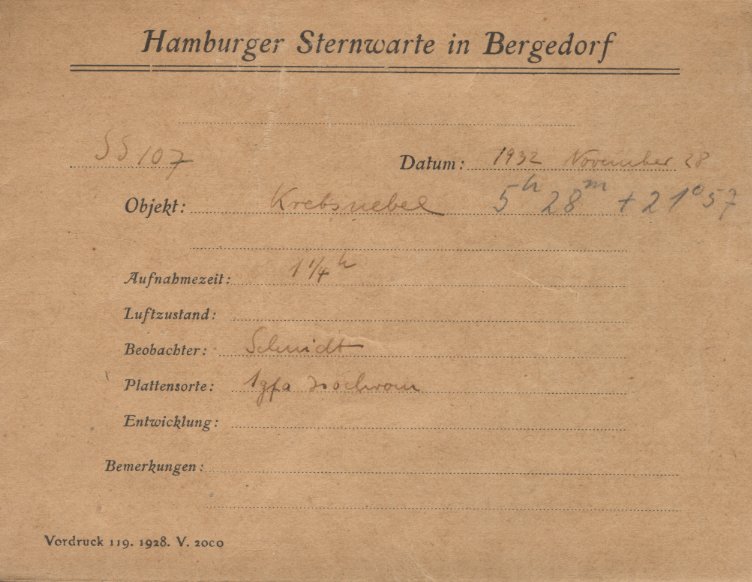 Hamburger Sternwarte in Bergedorf
SS 107 Datum: 1932 November 28
Objekt: Krebsnebel 5h 28m + 21° 57
Aufnahmezeit: 1 1/4 h
Luftzustand:
Beobachter: Schmidt
Plattensorte: Agfa Isochrom
Entwicklung:
Bemerkungen:
Vordruck 119. 1928. V. 2000